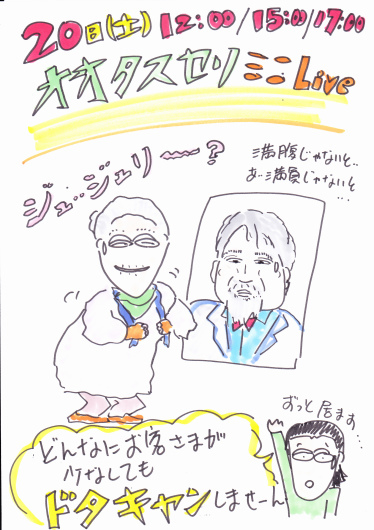 20日(土) 12:00/15:00/17:00
オオタスセリ ミニLive
ジュ…ジュリー〜?
満腹じゃないと…
あ…満員じゃないと
…
ずっと居ます…
どんなにお客さまが
少なくても
ドタキャンしませーん